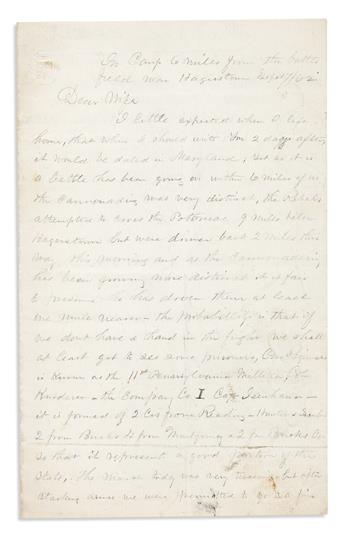 In Camp 6 miles from the battle
field near Hagerstown Sept 17/62
Dear Wife
I little expected when I left
home, that when I should write you 2 days after,
it would be dated in Maryland, but so it is
a battle has been going on within 6 miles of us
the Cannonading was very distinct, the Rebels
attempted to cross the Potomac 9 miles below
Hagerstown but were driven back 2 miles this
way this morning and as the Cannonading
has been growing more distinct it is fair
to presume he has driven them at least
one mile nearer - the probability is that if
we dont have a hand in the fight we shall
at least get to see some prisoners, Our Regiment
is known as the 11th Pensylvania Militia, Col
the Company Co I Cap Isenhauer -
it is formed of 2 Cos from Reading -
2 from Bucks from Montgomery & 2 from Berks Co
so that it represents a good portion of the
State, The March today was very but after
starting some we were permitted to